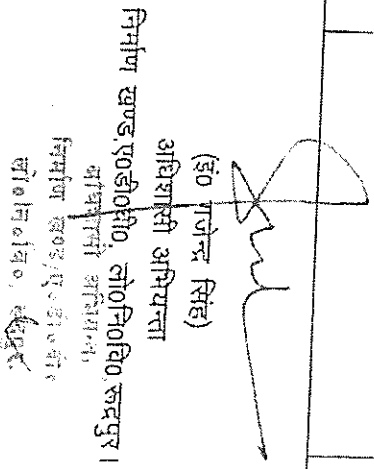 (इं० राजेन्द्र सिंह)
अधिशासी अभियन्ता
निर्माण खण्ड,ए०डी०बी०, लो०नि०वि०,रूद्रपुर।
अधिशासी अभियन्ता
निर्माण खण्ड,ए.डी.बी.
लो०नि०वि०,